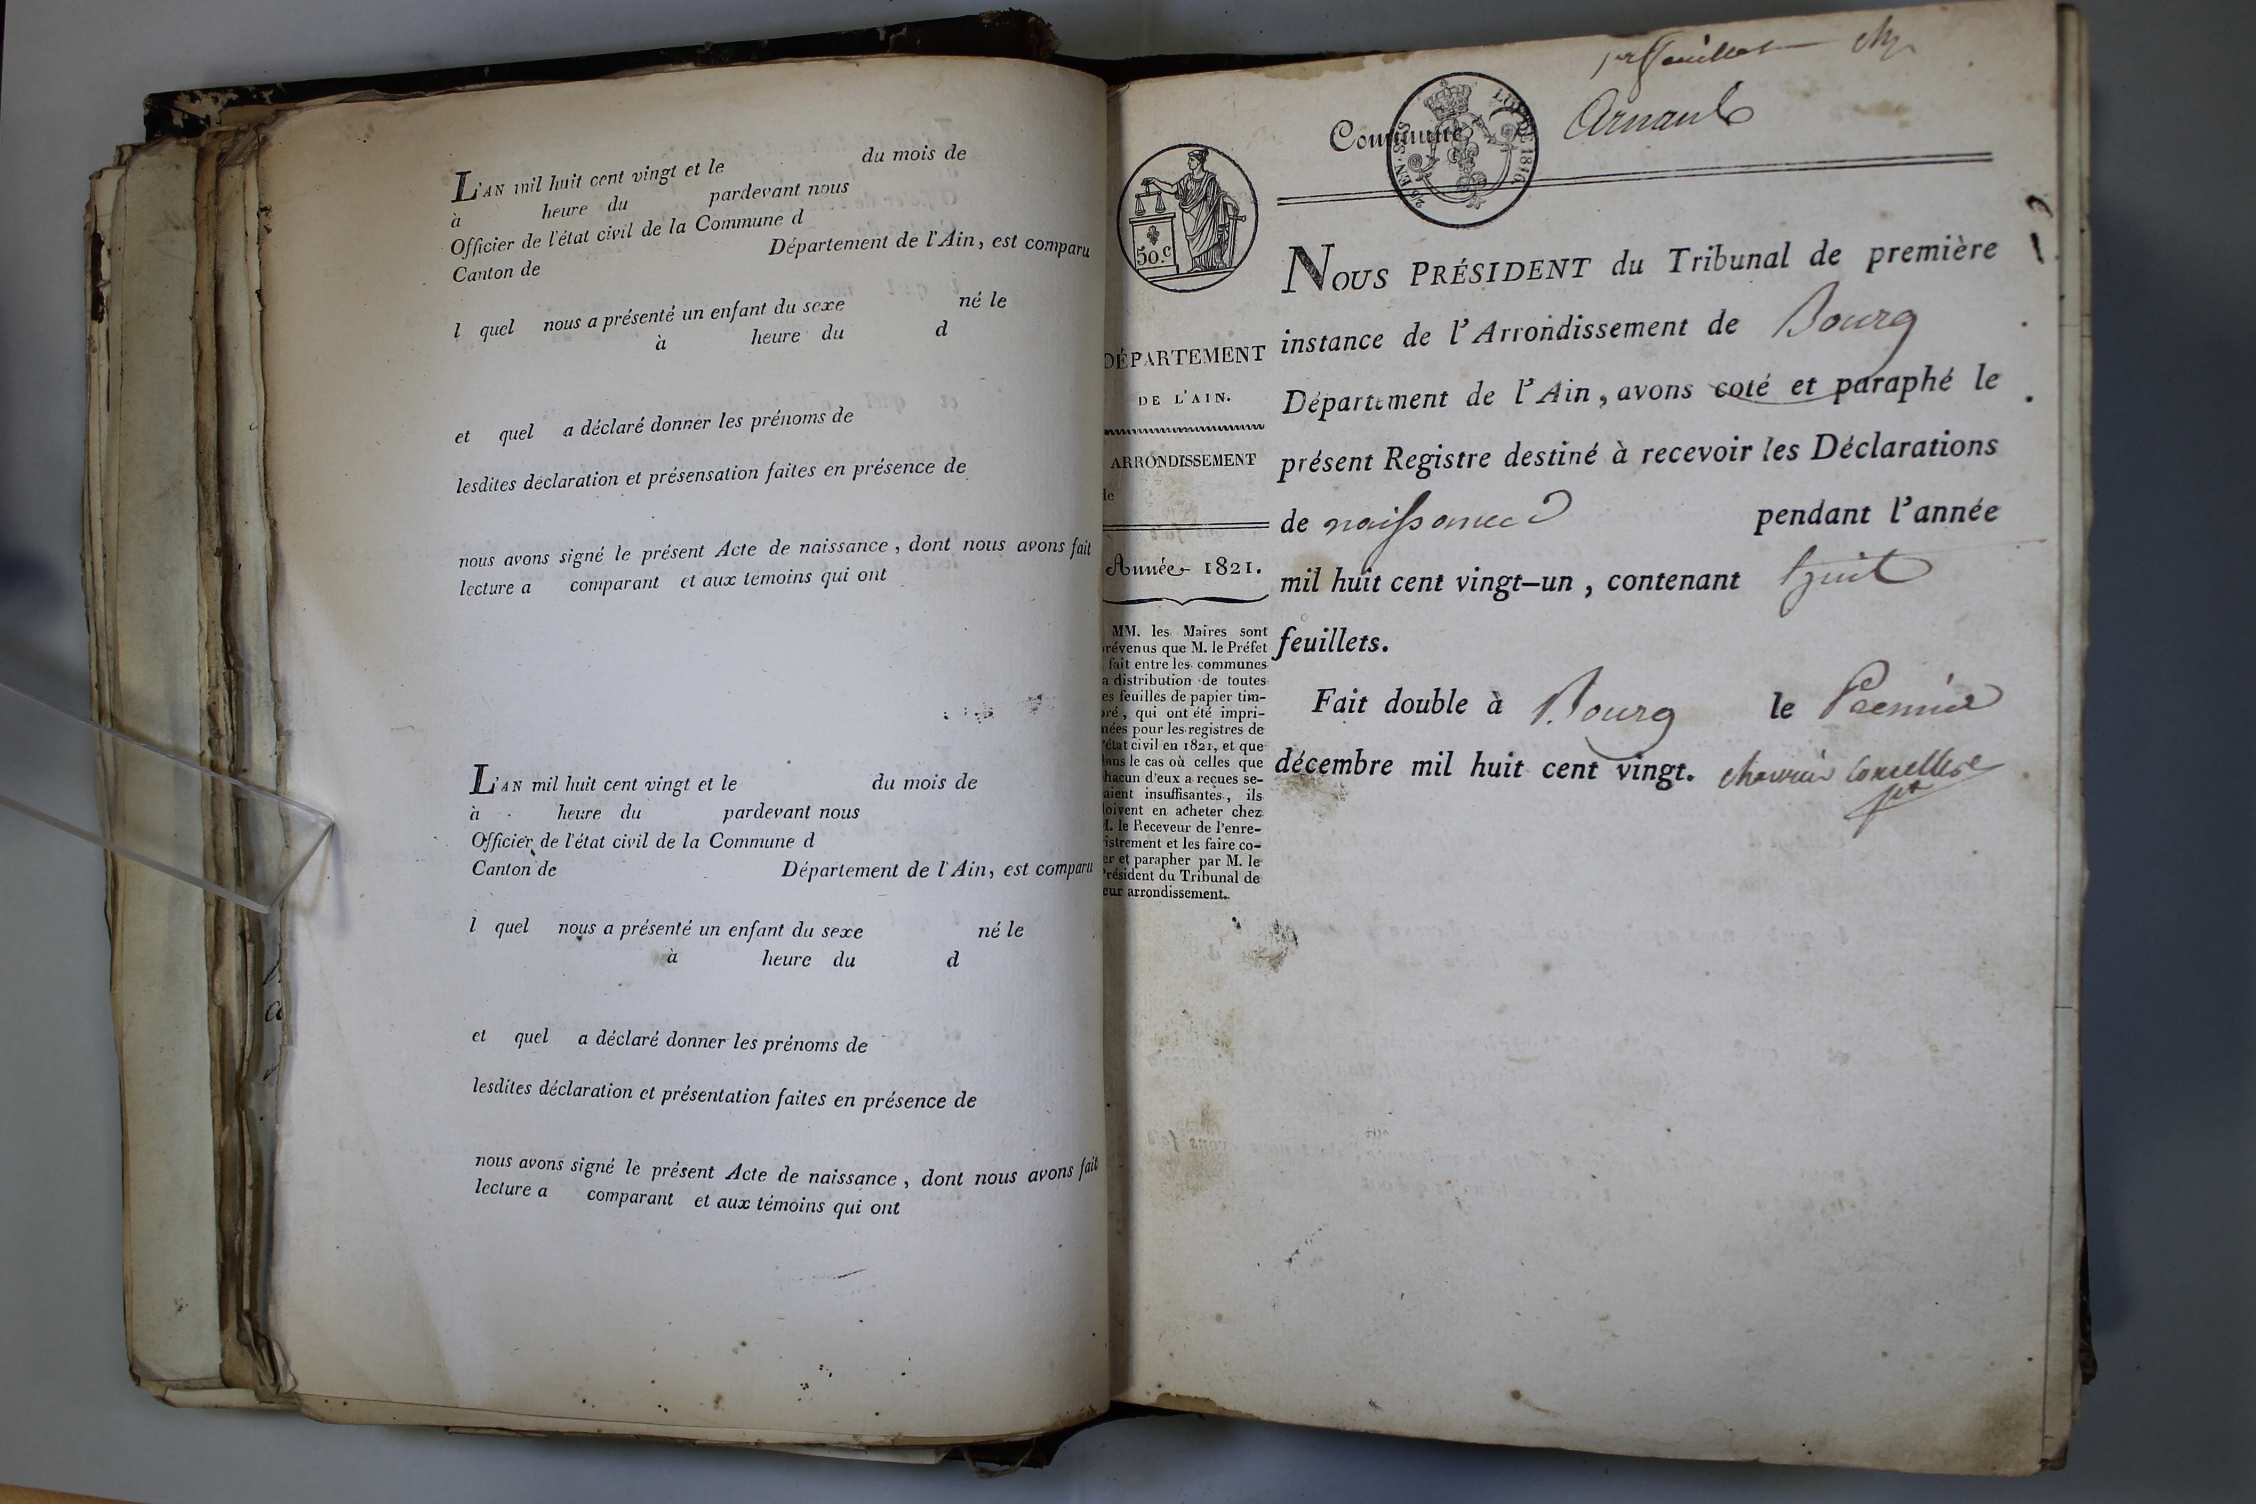 L'AN mil huit cent vingt et le du mois de
à heure du pardevant nous
Officier de l'état civil de la Commune d
Canton de Département de l'Ain, est comparu
l quel nous a présenté un enfant du sexe né le
à heure du d
et quel a déclaré donner les prénoms de
lesdites déclaration et présensation faites en présence de
nous avons signé le présent Acte de naissance, dont nous avons fait
lecture a comparant et aux témoins qui ont
L'AN mil huit cent vingt et le du mois de
à heure du pardevant nous
Officier de l'état civil de la Commune d
Canton de Département de l'Ain, est comparu
l quel nous a présenté un enfant du sexe né le
à heure du d
et quel a déclaré donner les prénoms de
lesdites déclaration et présentation faites en présence de
nous avons signé le présent Acte de naissance, dont nous avons fait
lecture a comparant et aux témoins qui ont
1er feuillet
Commune
LOI DE 1816
50.c
DÉPARTEMENT
DE L'AIN.
ARRONDISSEMENT
Année 1821.
MM. les Maires sont
révenus que M. le Préfet
fait entre les communes
a distribution de toutes
es feuilles de papier tim-
ré, qui ont été impri-
ées pour les registres de
état civil en 1821, et que
ans le cas où celles que
hacun d'eux a reçues se-
aient insuffisantes, ils
oivent en acheter chez
. le Receveur de l'enre-
istrement et les faire co-
er et parapher par M. le
résident du Tribunal de
eur arrondissement.
NOUS PRÉSIDENT du Tribunal de première
instance de l'Arrondissement de Bourg
Département de l'Ain, avons coté et paraphé le
présent Registre destiné à recevoir les Déclarations
de naissance pendant l'année
mil huit cent vingt-un, contenant huit
feuillets.
Fait double à Bourg le Premier
décembre mil huit cent vingt.